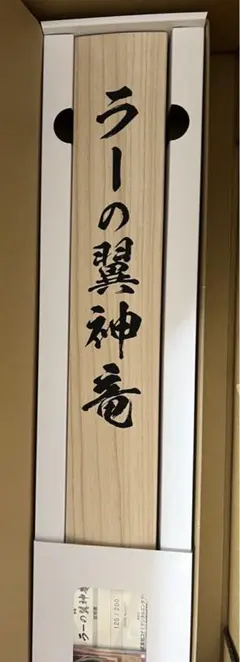 ラーの翼神竜
ラーの翼神竜
120/200